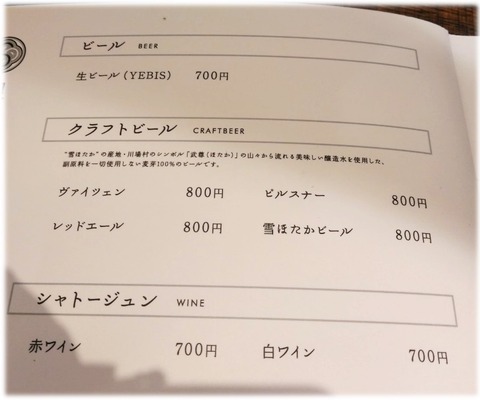 ビール BEER
生ビール(YEBIS) 700円
クラフトビール CRAFTBEER
"雪ほたか"の産地・川場村のシンボル「武尊(ほたか)」の山々から流れる美味しい醸造水を使用した、
副原料を一切使用しない麦芽100%のビールです。
ヴァイツェン 800円 ピルスナー 800円
レッドエール 800円 雪ほたかビール 800円
シャトージュン WINE
赤ワイン 700円 白ワイン 700円